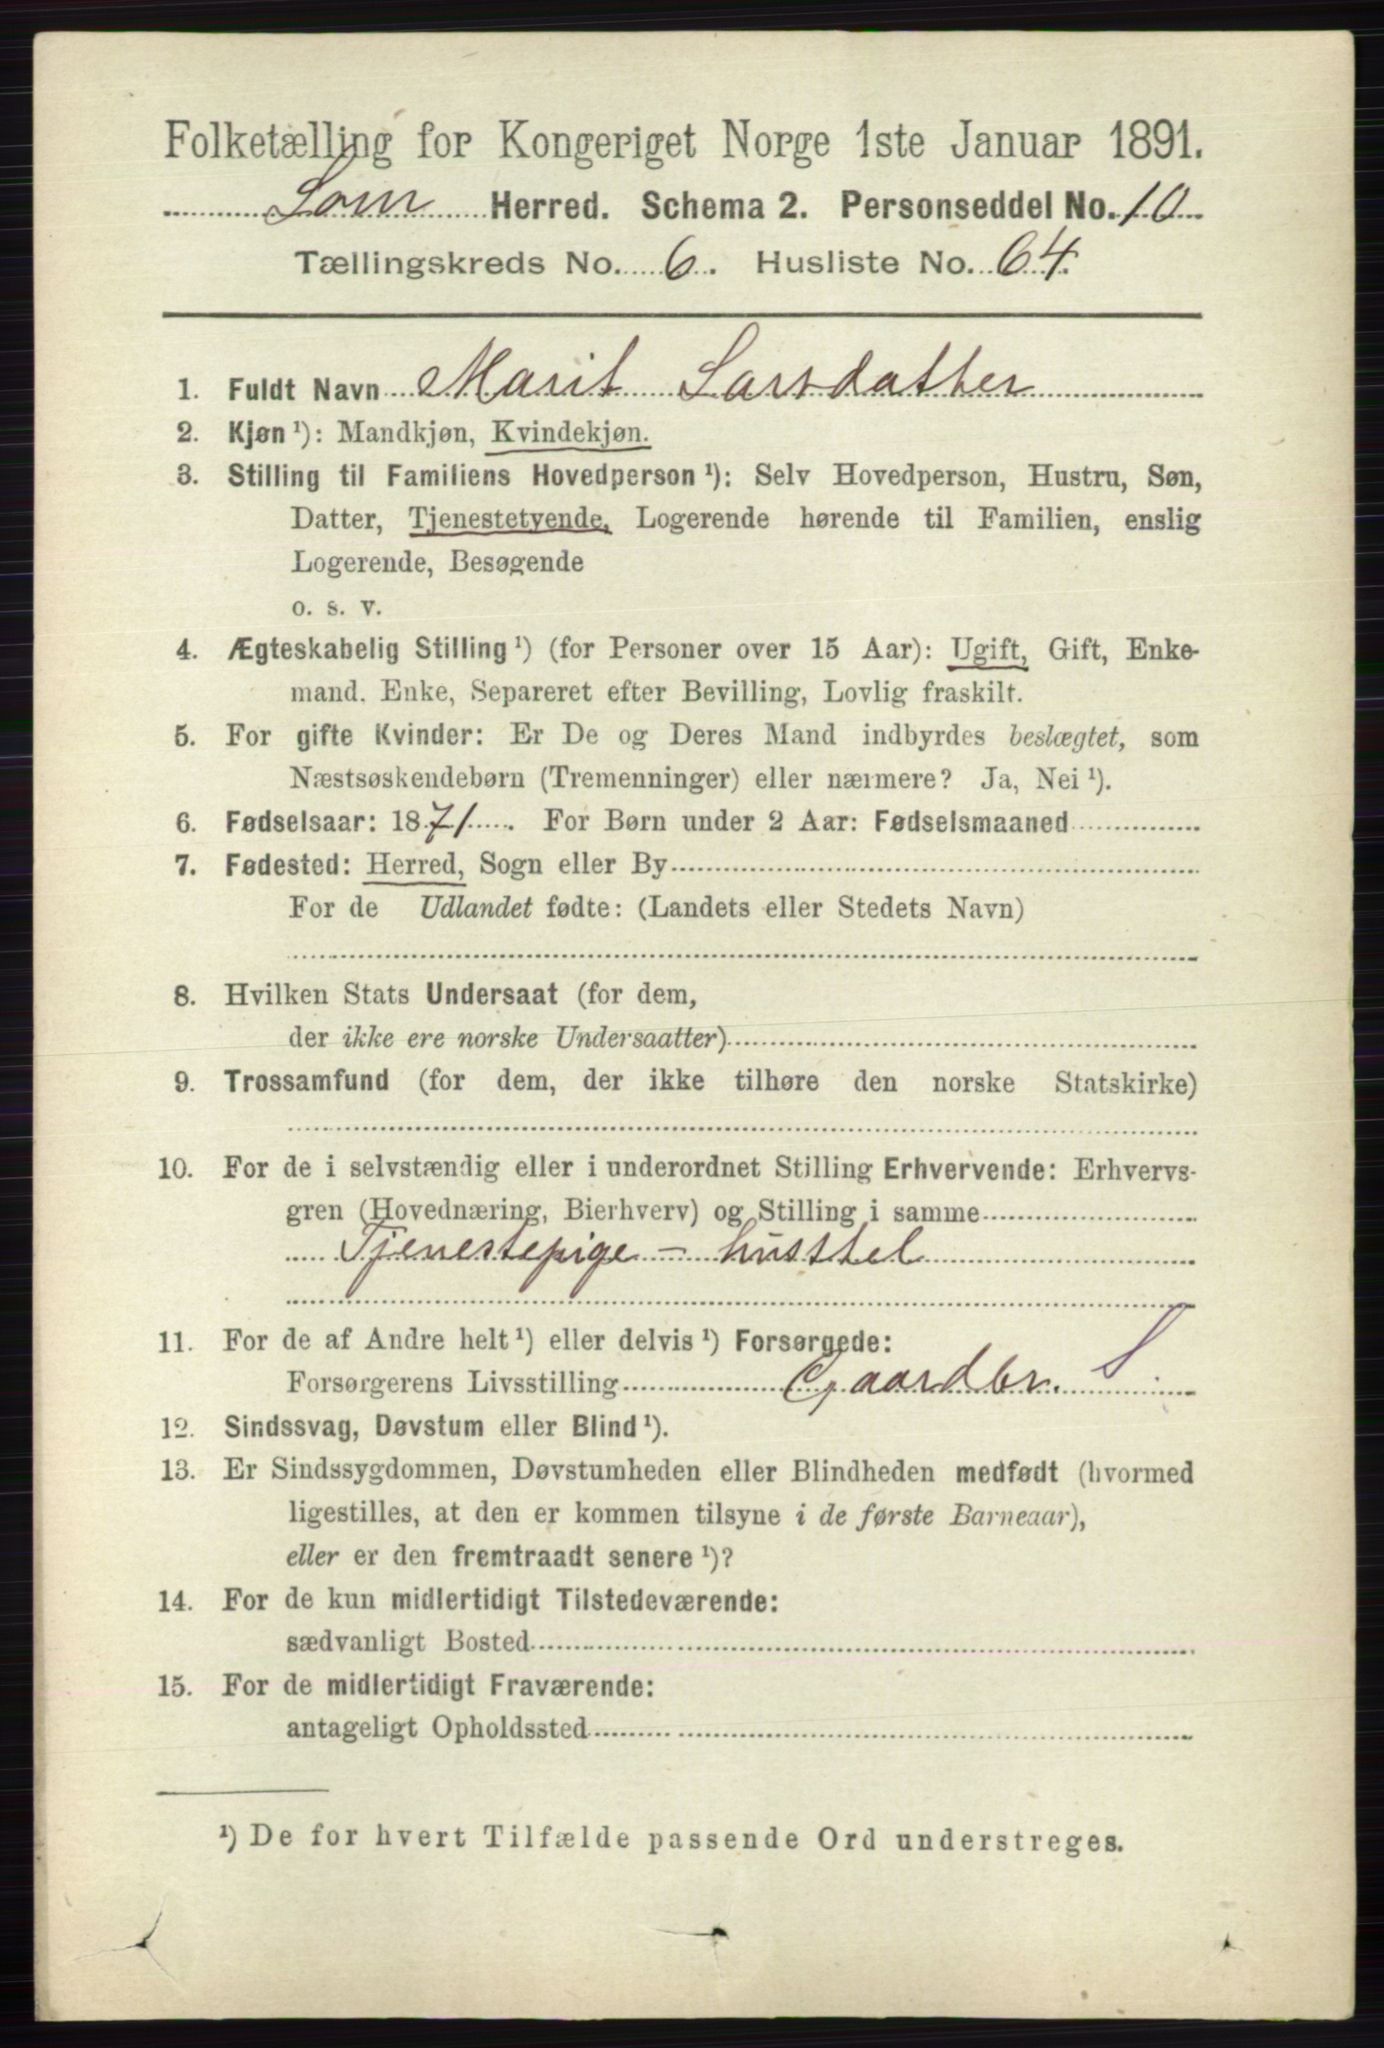 Folketælling for Kongeriget Norge 1ste Januar 1891.
Lom Herred. Schema 2. Personseddel No. 10
Tællingskreds No. 6. Husliste No. 64.
1. Fuldt Navn Marit Larsdatter
2. Kjøn ¹): Mandkjøn, Kvindekjøn.
3. Stilling til Familiens Hovedperson ¹): Selv Hovedperson, Hustru, Søn,
Datter, Tjenestetyende, Logerende hørende til Familien, enslig
Logerende, Besøgende
o. s. v.
4. Ægteskabelig Stilling ¹) (for Personer over 15 Aar): Ugift, Gift, Enke-
mand. Enke, Separeret efter Bevilling, Lovlig fraskilt.
5. For gifte Kvinder: Er De og Deres Mand indbyrdes beslægtet, som
Næstsøskendebørn (Tremenninger) eller nærmere? Ja, Nei ¹).
6. Fødselsaar: 1871. For Børn under 2 Aar: Fødselsmaaned
7. Fødested: Herred, Sogn eller By
For de Udlandet fødte: (Landets eller Stedets Navn)
8. Hvilken Stats Undersaat (for dem,
der ikke ere norske Undersaatter)
9. Trossamfund (for dem, der ikke tilhøre den norske Statskirke)
10. For de i selvstændig eller i underordnet Stilling Erhvervende: Erhvervs-
gren (Hovednæring, Bierhverv) og Stilling i samme
Tjenestepige - husstel
11. For de af Andre helt ¹) eller delvis ¹) Forsørgede:
Forsørgerens Livsstilling Gaardbr. S
12. Sindssvag, Døvstum eller Blind ¹).
13. Er Sindssygdommen, Døvstumheden eller Blindheden medfødt (hvormed
ligestilles, at den er kommen tilsyne i de første Barneaar),
eller er den fremtraadt senere ¹)?
14. For de kun midlertidigt Tilstedeværende:
sædvanligt Bosted
15. For de midlertidigt Fraværende:
antageligt Opholdssted
¹) De for hvert Tilfælde passende Ord understreges.